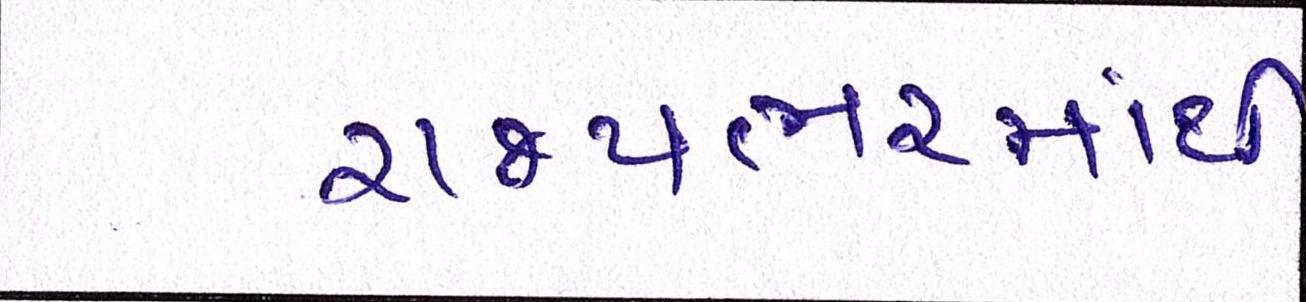 રાજ્યભરમાંથી